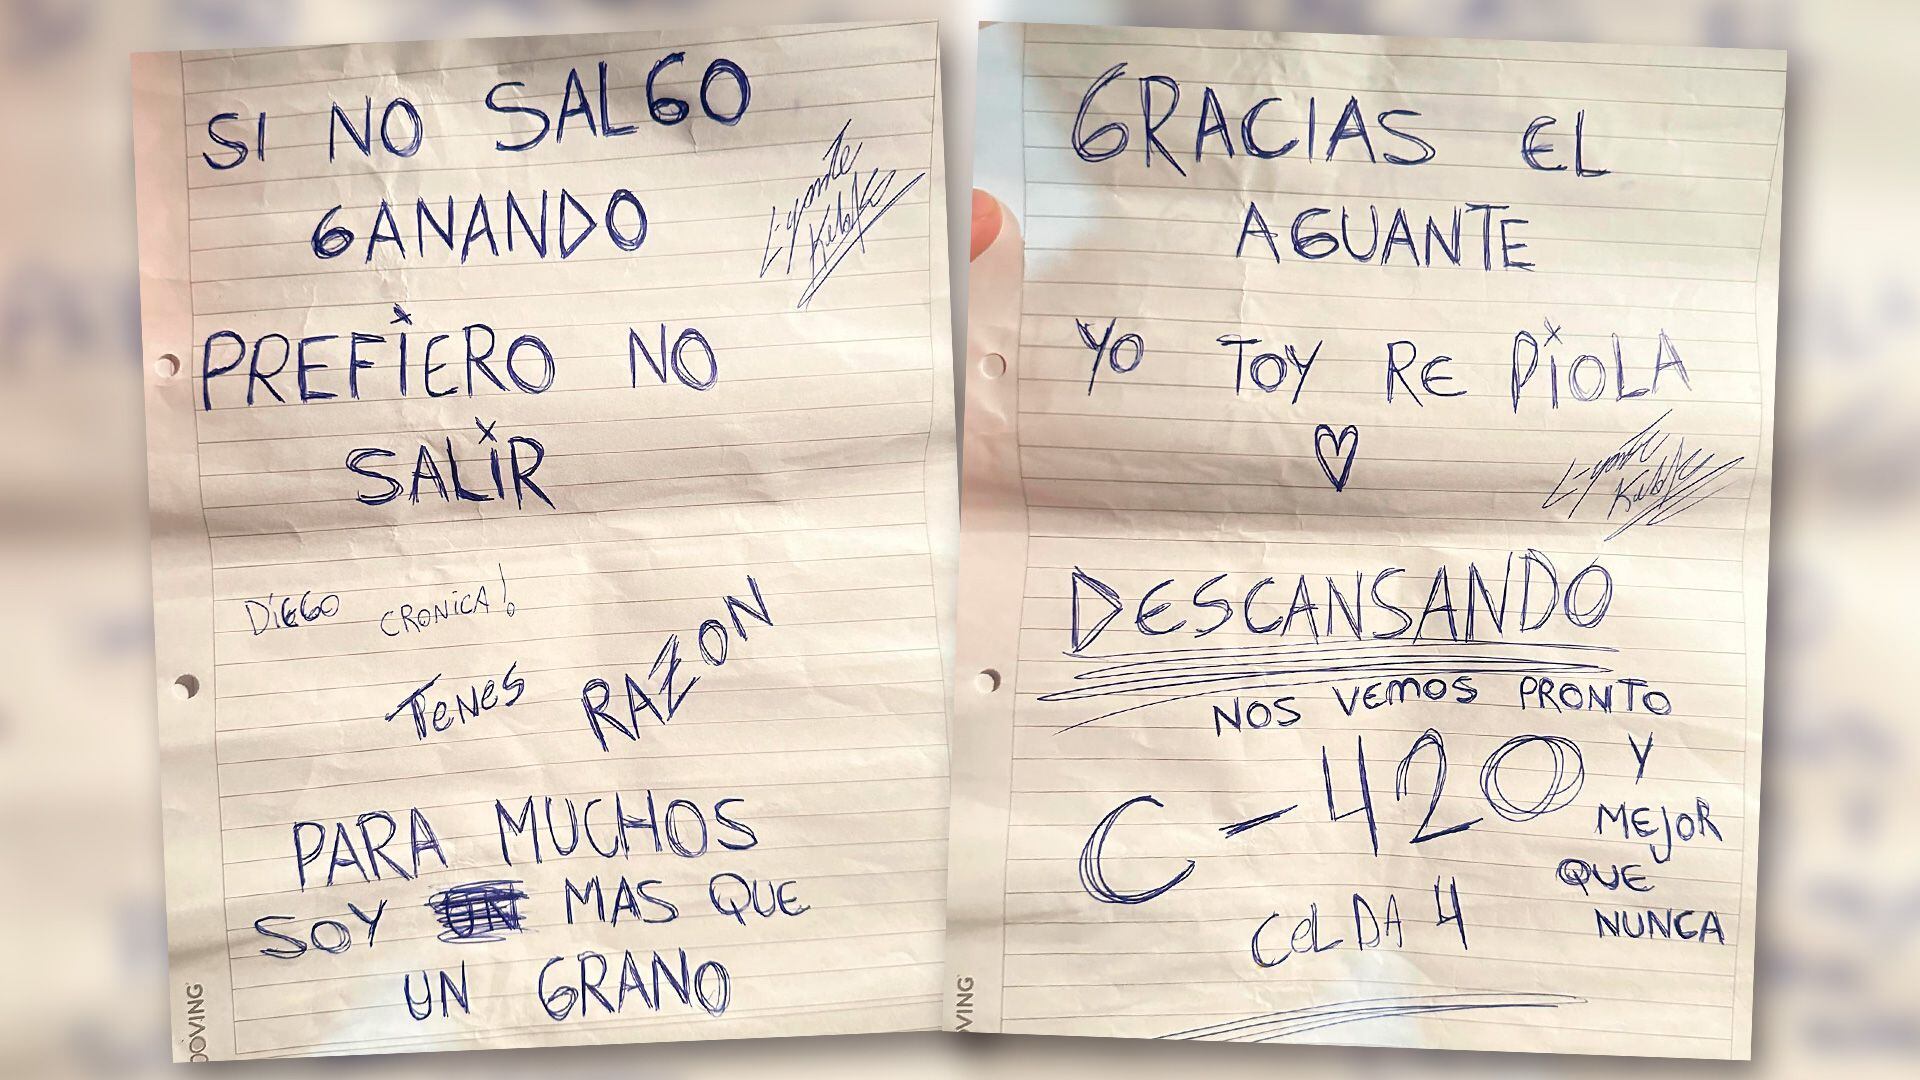 SI NO SALGO
GANANDO
L-gante
PREFIERO NO
SALIR
DIEGO CRONICA!
TENES RAZON
PARA MUCHOS
SOY UN MAS QUE
UN GRANO
OOVING
GRACIAS EL
AGUANTE
YO TOY RE PIOLA
L-gante
DESCANSANDO
NOS VEMOS PRONTO
Y
C-420
MEJOR
QUE
CELDA 4
NUNCA
VING